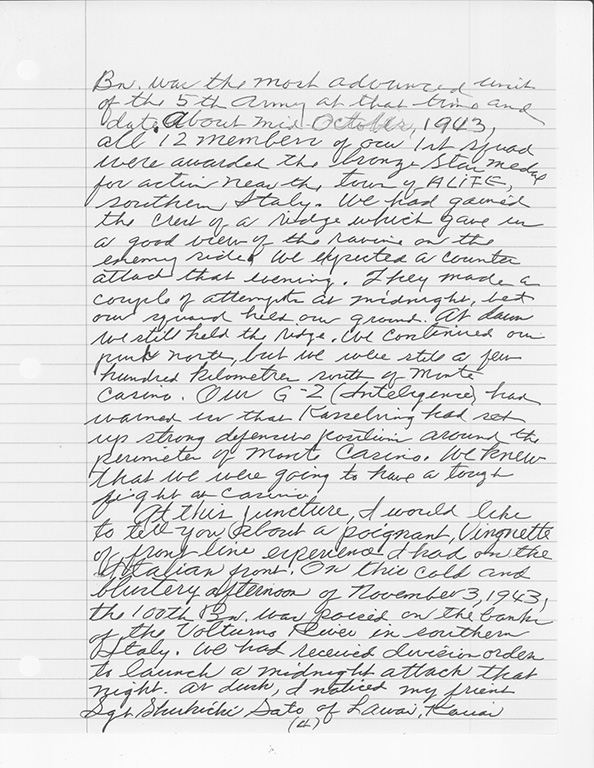 Bn. was the most advanced unit
of the 5th Army at that time and
date. About mid-October, 1943,
all 12 members of our 1st squad
were awarded the bronze star medals
for action near the town of ALIFE,
southern Italy. We had gained
the crest of a ridge which gave us
a good view of the ravine on the
enemy side. We expected a counter
attack that evening. They made a
couple of attempts at midnight, but
our squad held our ground. At dawn
we still held the ridge. We continued our
push north, but we were still a few
hundred kilometres south of Monte
Casino. Our G-2 (Intelligence) had
warned us that Kasselring had set
up strong defensive positions around the
perimeter of Monte Casino. We knew
that we were going to have a tough
fight at Casino.
At this juncture, I would like
to tell you about a poignant, Vingnette
of front line experience I had on the
Italian front. On this cold and
blustery afternoon of November 3, 1943,
the 100th Bn. was poised on the banks
of the Volturno River in southern
Italy. We had received division orders
to launch a midnight attack that
night. At dusk, I noticed my friend
Sgt Shukichi Sato of Lawai, Kauai
(4)